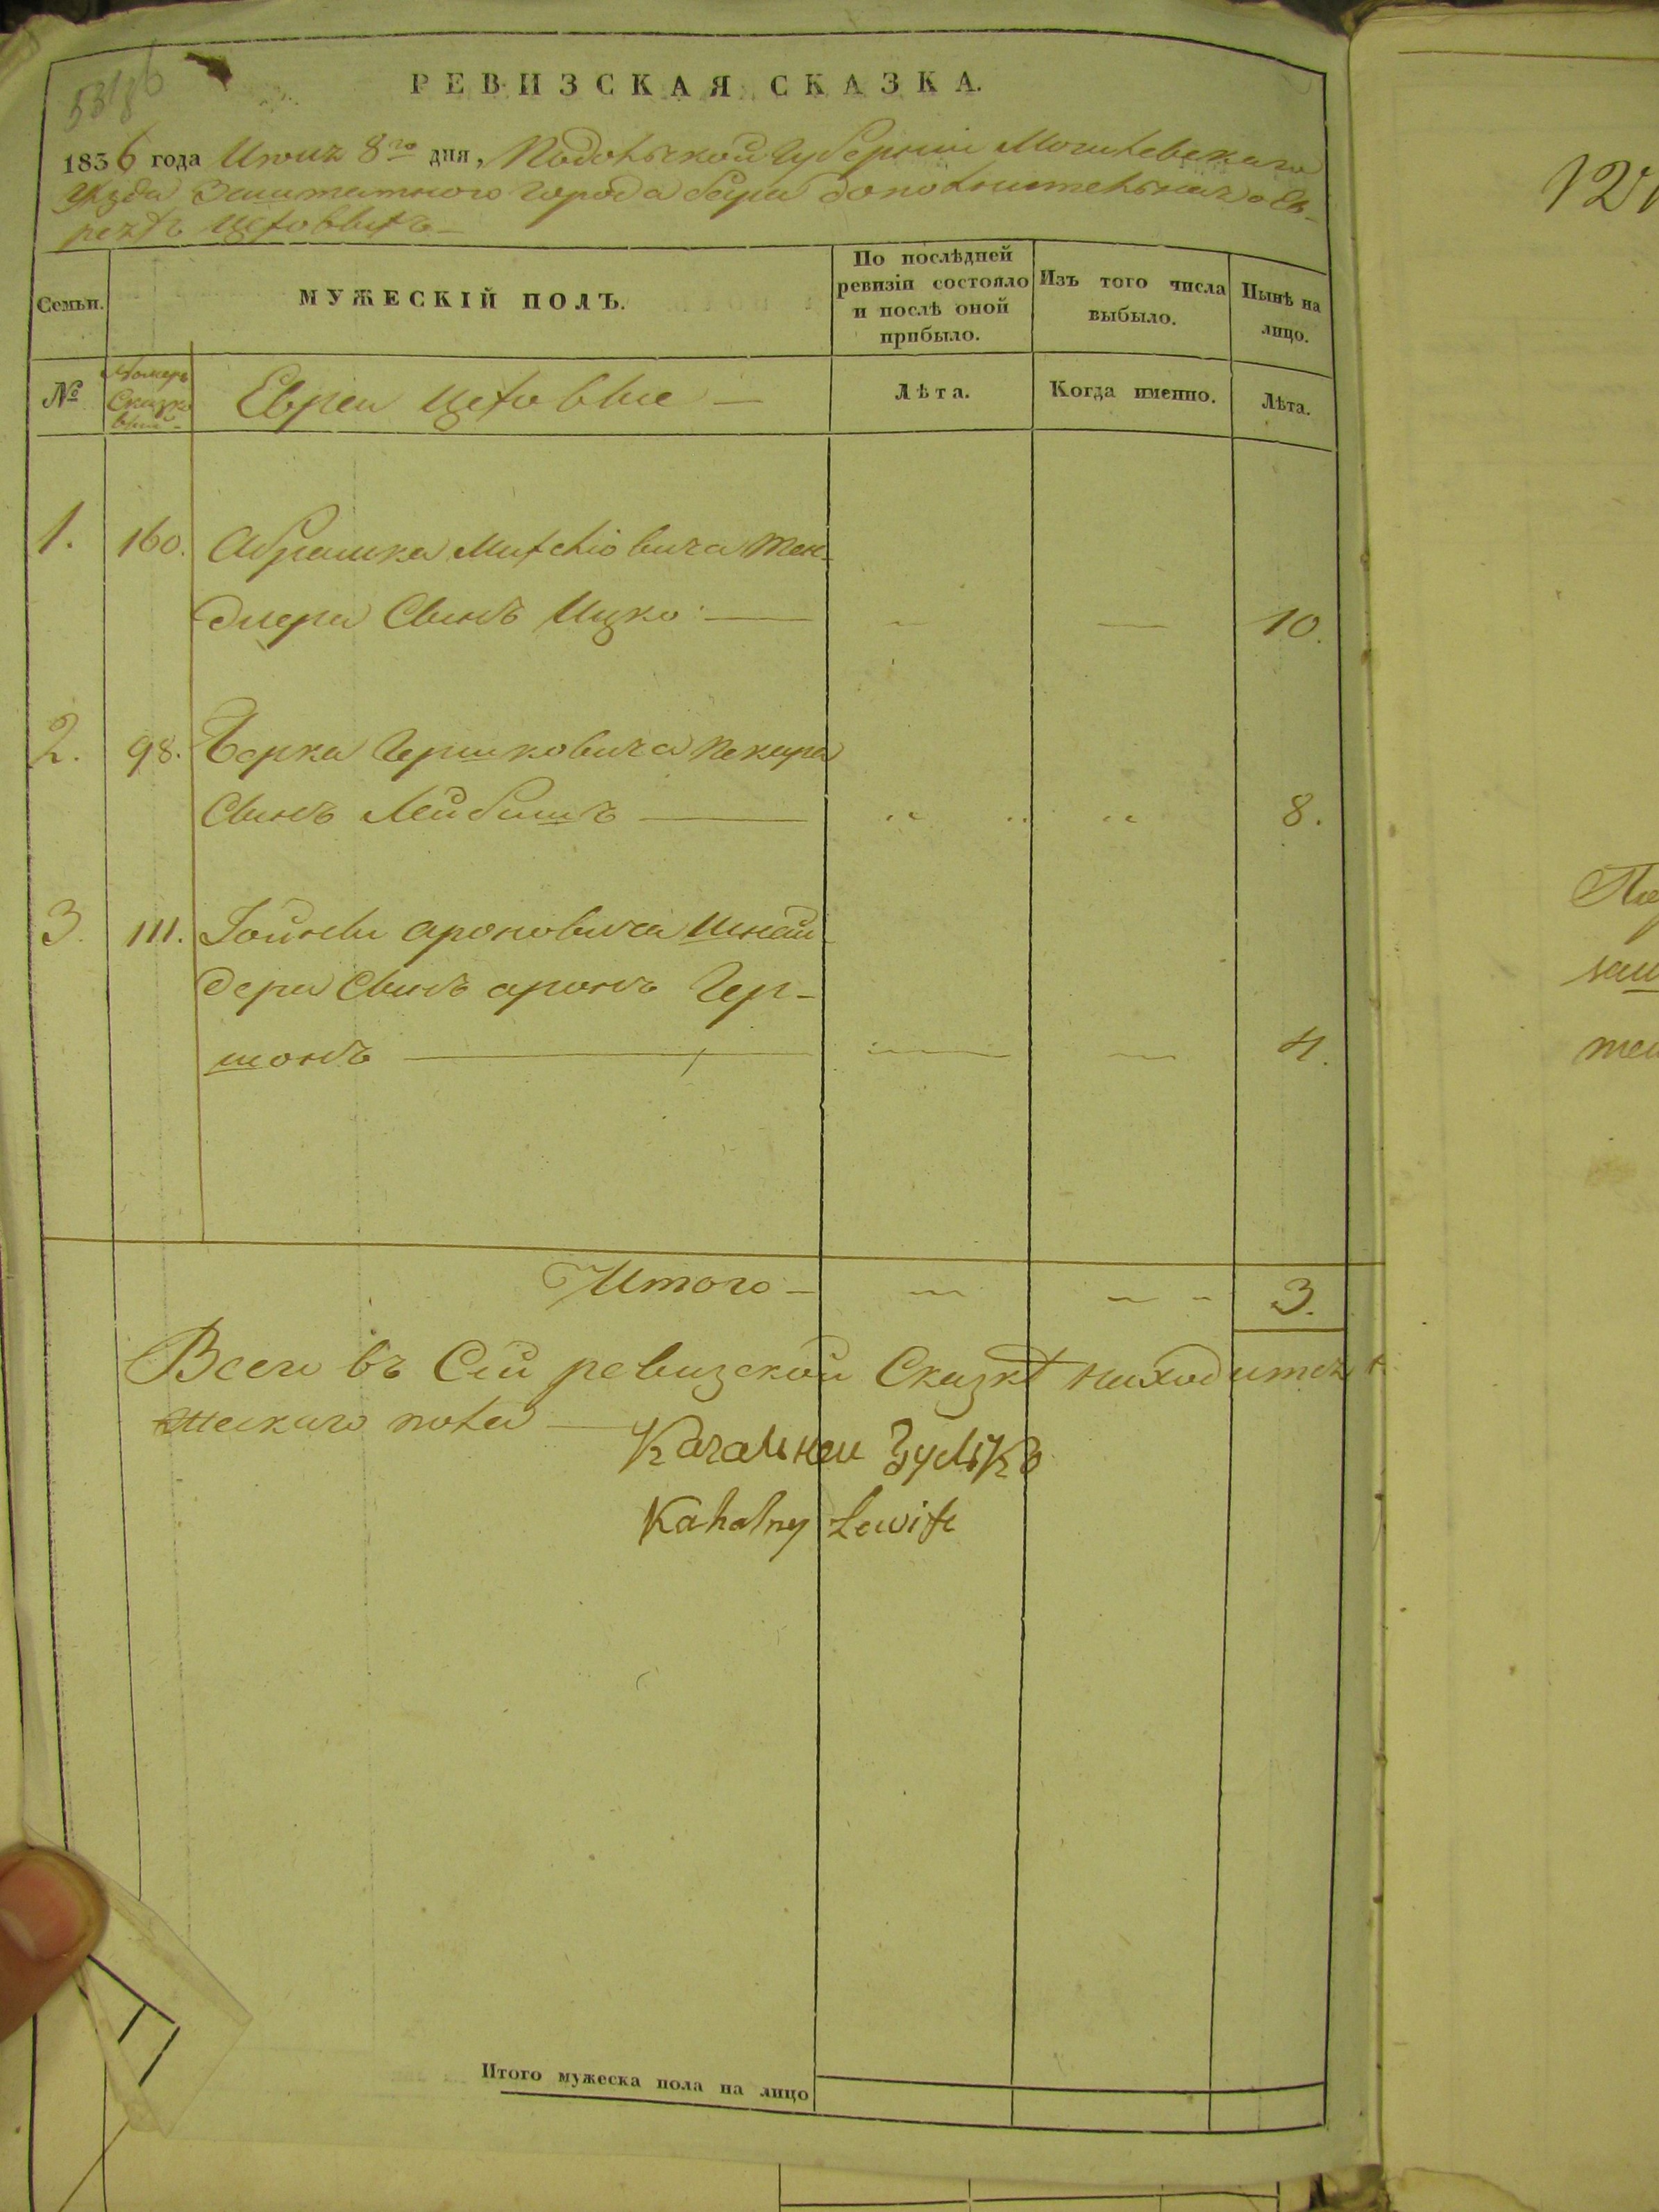 РЕВИЗСКАЯ СКАЗКА.
1836 года Июня 8го дня, Подольской Губернии Могилевскаго
Уезда Заштатного города Бара дополнительная о Ев-
реяхъ цеховыхъ
Семьи.
МУЖЕСКІЙ ПОЛЪ.
По послѣдней ревизіи состояло и послѣ оной прибыло.
Изъ того числа выбыло.
Нынѣ на лицо.
№
Номеръ
Сказко
Евреи цеховые —
Лѣта.
Когда именно.
Лѣта.
1. 160. Абрашка
дчера Сынъ Ицко — 10.
2. 98. Берка Гершковича Пекара
Сынъ Лейбишъ — 8.
3. 111. Іойны Ароновича Шнай
дера Сынъ Аронъ Гер-
шонъ — 4.
Итого — 3.
Всего въ Сій ревизской Сказкѣ находится
жескаго пола —
Кагальнеи Зуслко
Kahalny
Итого мужеска пола на лицо
121